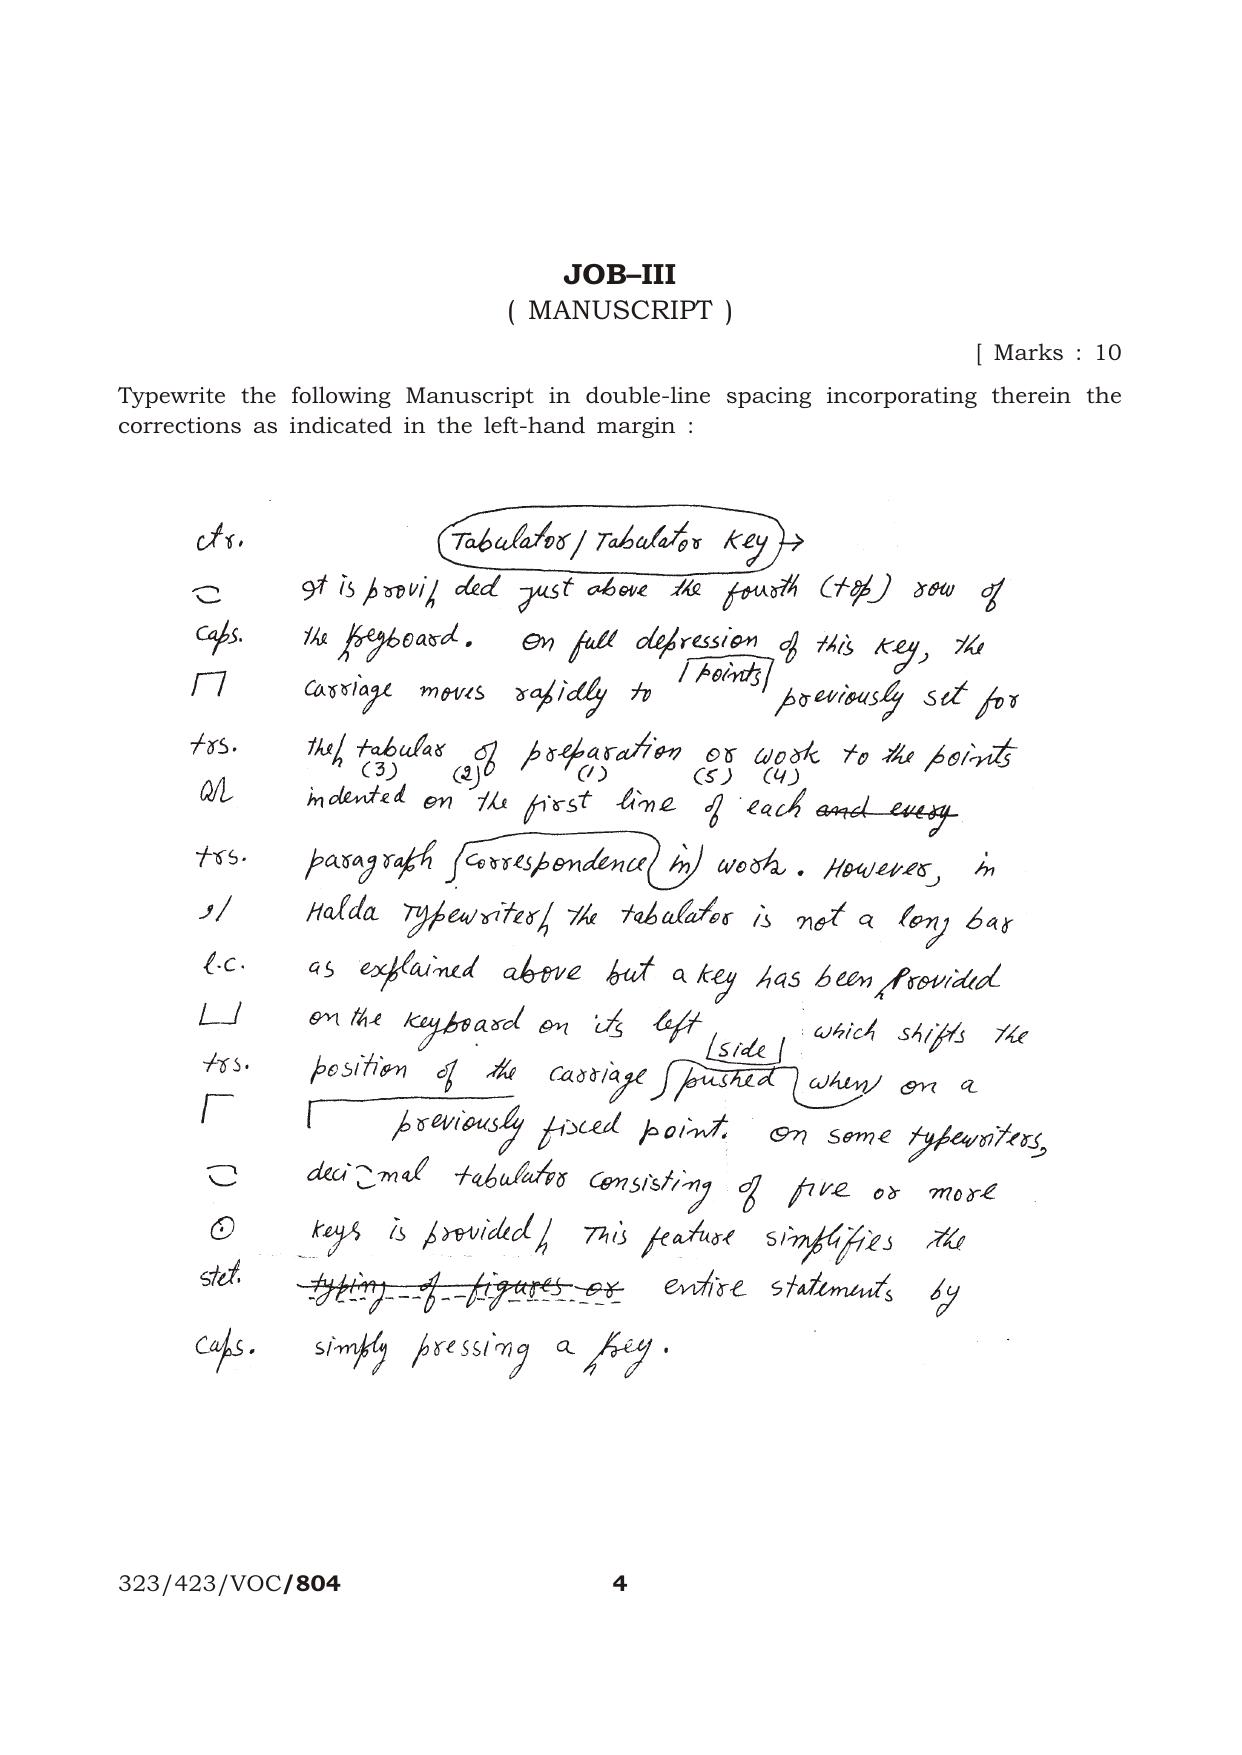 JOB–III
( MANUSCRIPT )
[ Marks : 10
Typewrite the following Manuscript in double-line spacing incorporating therein the
corrections as indicated in the left-hand margin :
ctr. Tabulator/Tabulator Key
It is provi ded just above the fourth (top) row of
caps. the keyboard. On full depression of this key, the
carriage moves rapidly to points previously set for
trs. the tabular of preparation or work to the points
(3) (2) (1) (5) (4)
indented on the first line of each and every
trs. paragraph correspondence in work. However, in
,/ Halda Typewriter the tabulator is not a long bar
l.c. as explained above but a key has been Provided
on the keyboard on its left side which shifts the
trs. position of the carriage pushed when on a
previously fixed point. On some typewriters,
deci mal tabulator consisting of five or more
⊙ keys is provided This feature simplifies the
stet. typing of figures or entire statements by
caps. simply pressing a key.
323/423/VOC/804 4